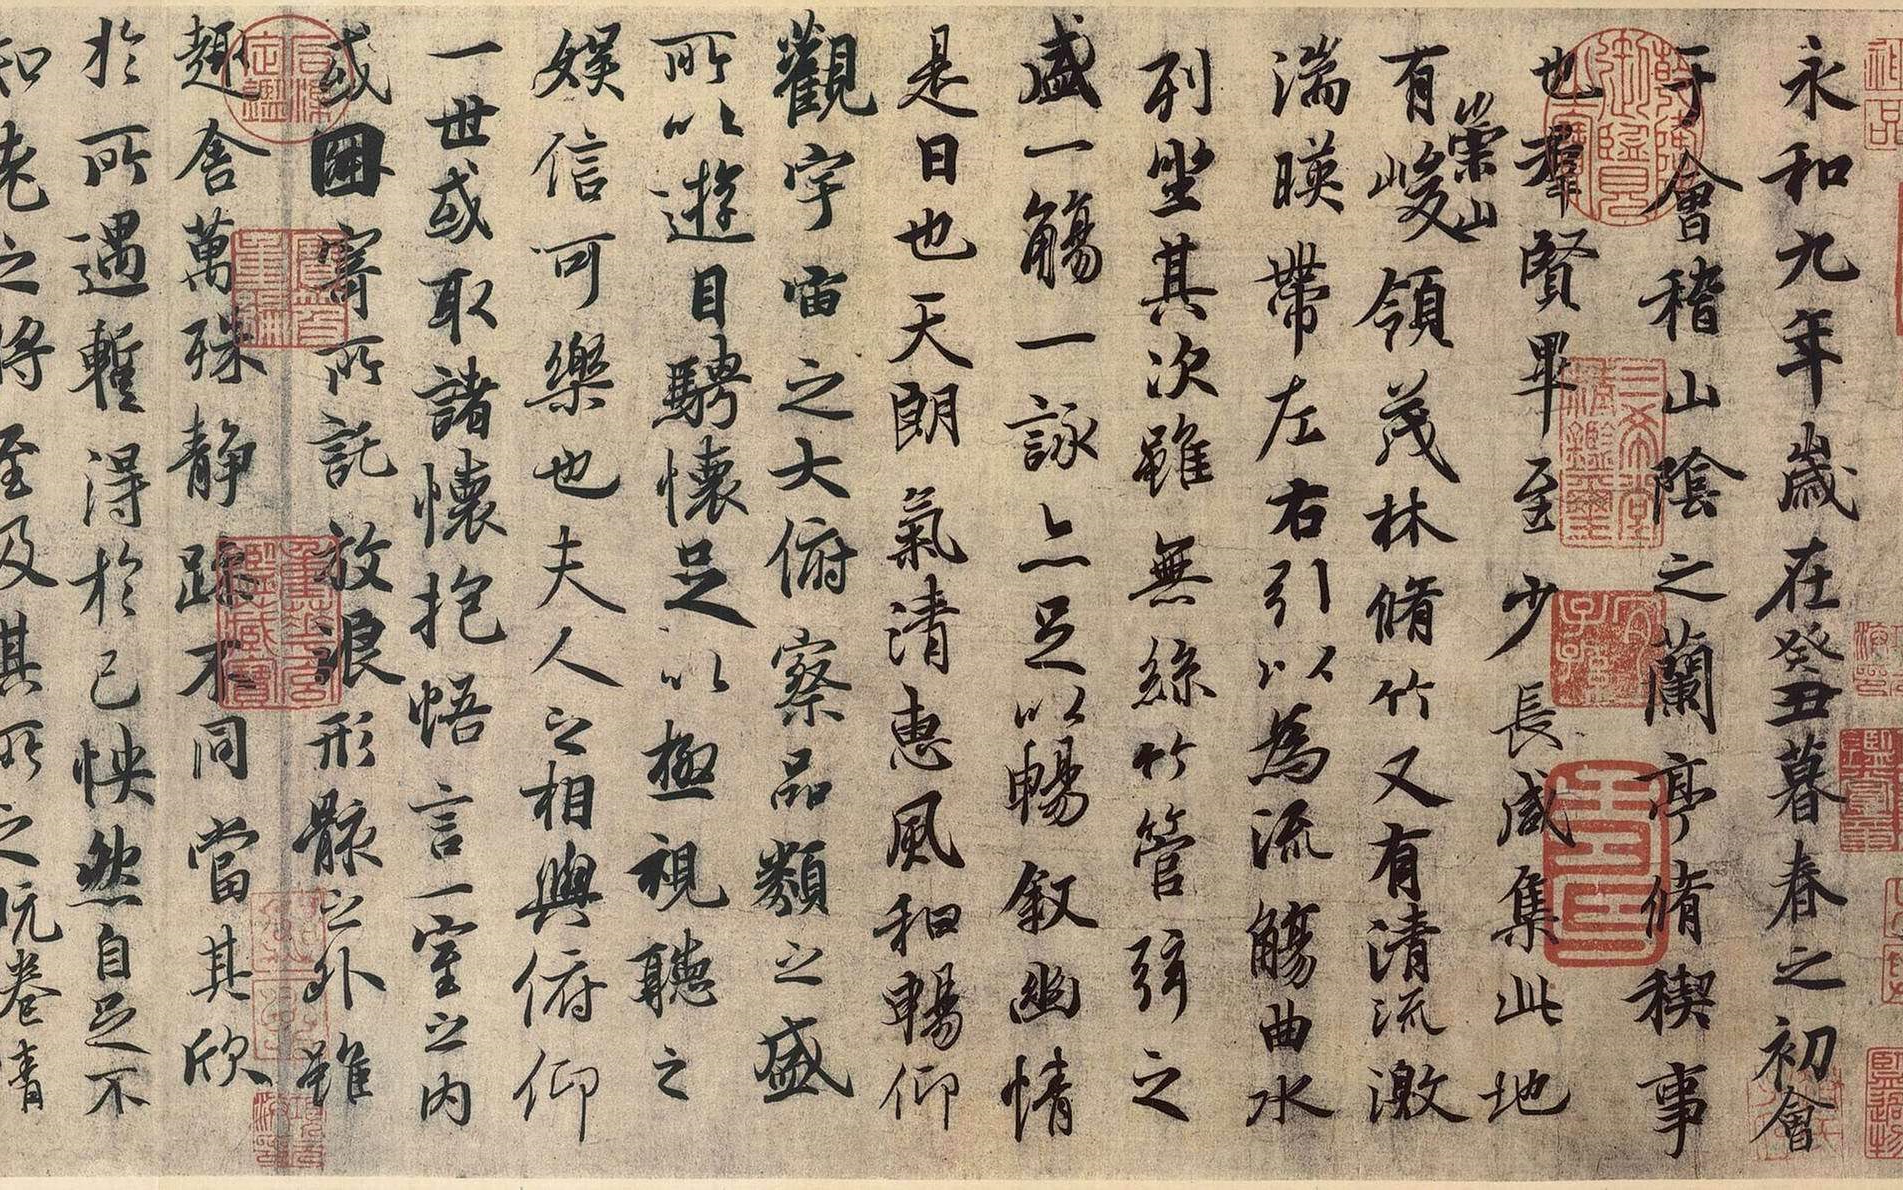 永和九年歲在癸丑暮春之初會
于會稽山陰之蘭亭脩稧事
也羣賢畢至少長咸集此地
有崇山峻領茂林脩竹又有清流激
湍暎帶左右引以為流觴曲水
列坐其次雖無絲竹管弦之
盛一觴一詠亦足以暢敘幽情
是日也天朗氣清惠風和暢仰
觀宇宙之大俯察品類之盛
所以遊目騁懷足以極視聽之
娛信可樂也夫人之相與俯仰
一世或取諸懷抱悟言一室之內
或因寄所託放浪形骸之外雖
趣舍萬殊静躁不同當其欣
於所遇暫得於己怏然自足不
知老之將至及其所之既惓情